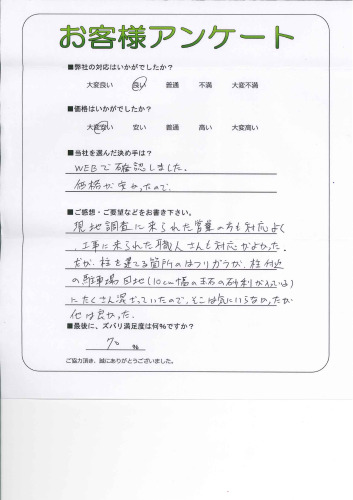 お客様アンケート
■弊社の対応はいかがでしたか?
大変良い 良い 普通 不満 大変不満
■価格はいかがでしたか?
大変安い 安い 普通 高い 大変高い
■当社を選んだ決め手は?
WEBで確認しました。
価格が安かったので。
■ご感想・ご要望などをお書き下さい。
現地調査に来られた営業の方も対応よく
、工事に来られた職人さんも対応がよかった。
だが、柱を建てる箇所のはつりガラが、柱付近
の駐車場目地(10cm幅の玉石の砂利が入っている)
にたくさん混ざっていたので、そこは気にいらなかったが
他は良かった。
■最後に、ズバリ満足度は何%ですか?
70 %
ご協力頂き、誠にありがとうございました。